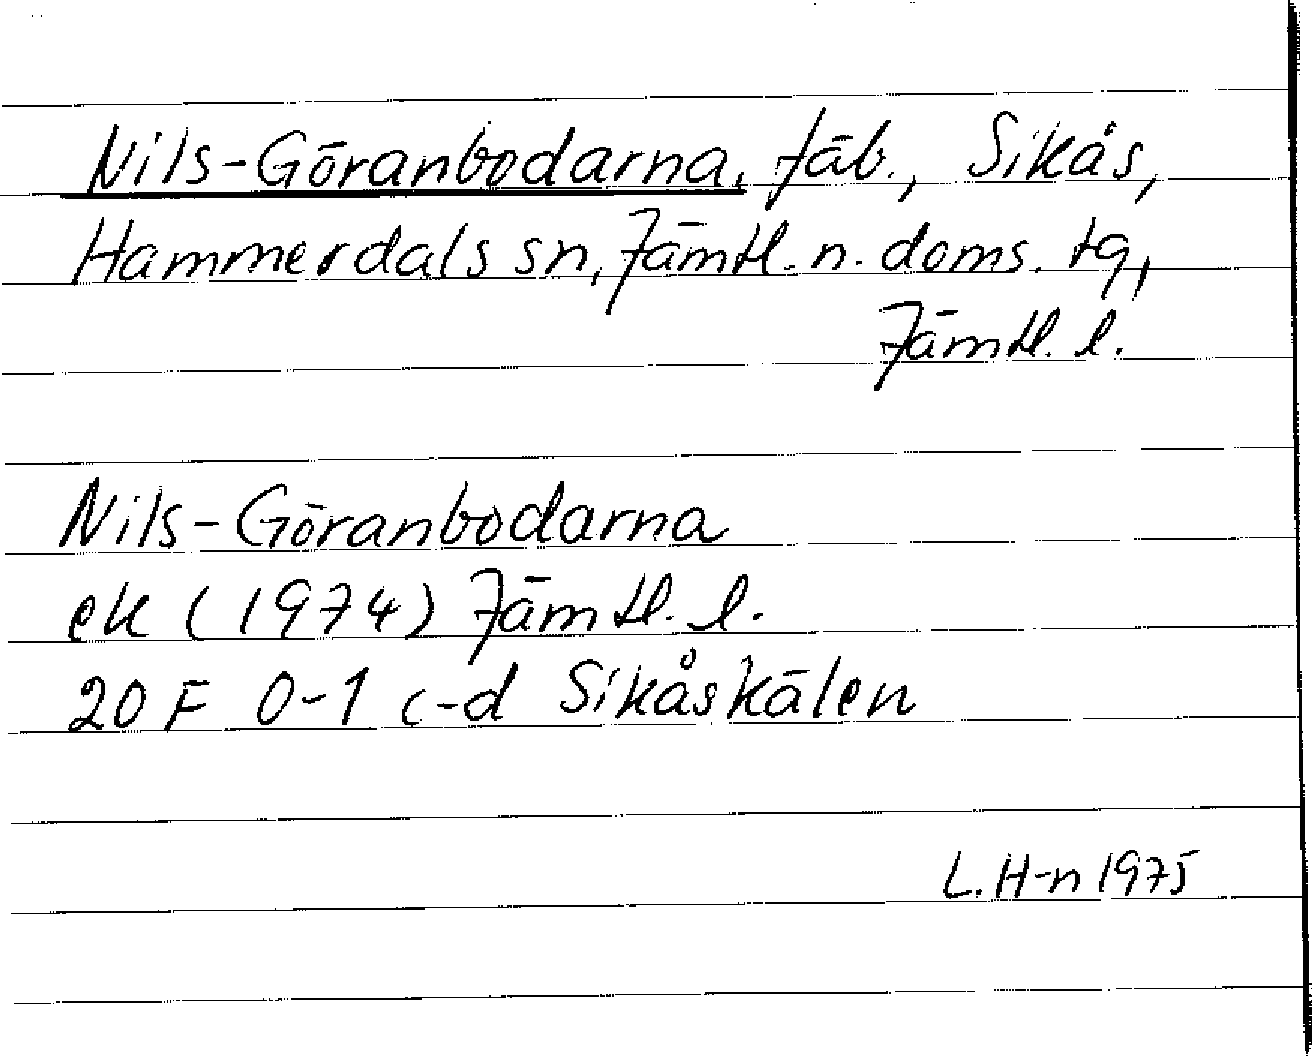 Nils-Göranbodarna, fäb., Sikås,
Hammerdals sn, Jämtl. n. doms. tg,
Jämtl. l.
Nils-Göranbodarna
ek (1974) Jämtl. l.
20 F 0-1 c-d Sikåskälen
L. H-n 1975